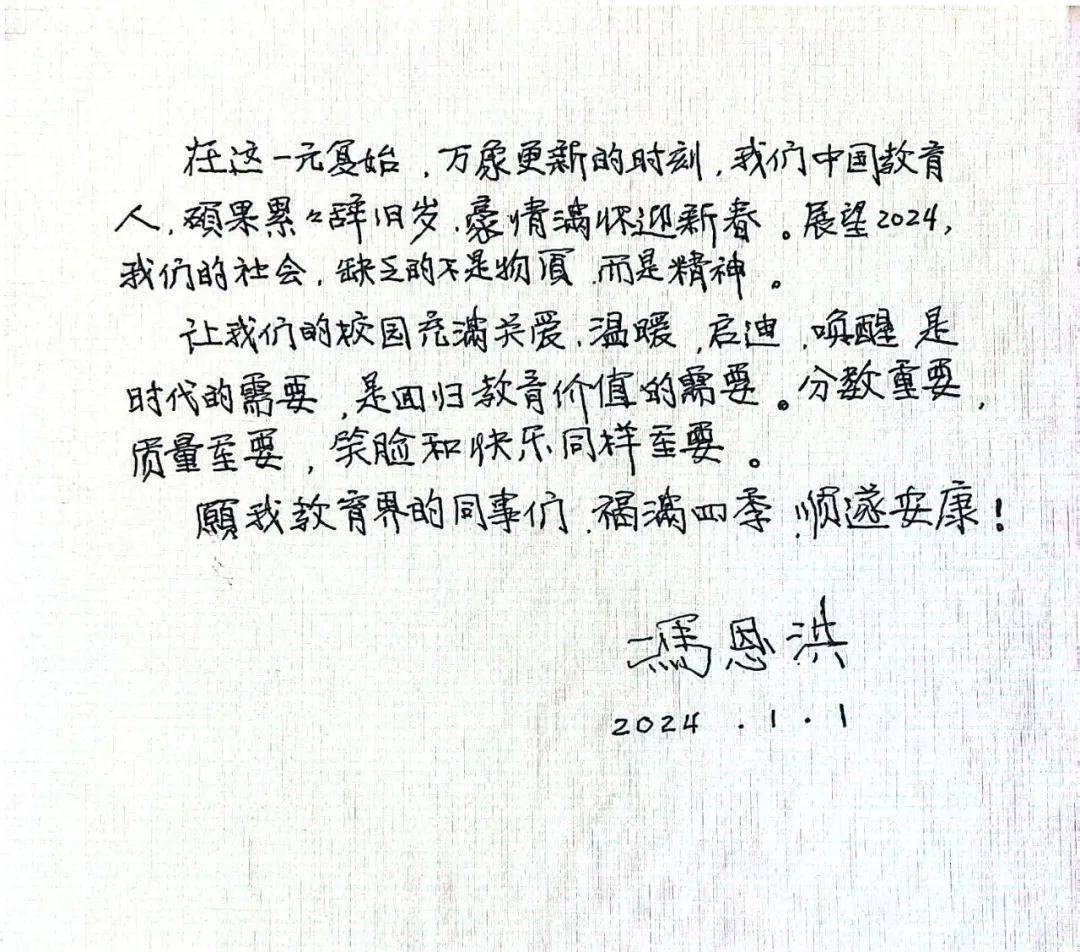 在这一元复始，万象更新的时刻，我们中国教育
人，硕果累々辞旧岁，豪情满怀迎新春。展望2024，
我们的社会，缺乏的不是物质，而是精神。
让我们的校园充满关爱，温暖，启迪，唤醒是
时代的需要，是回归教育价值的需要。分数重要，
质量至要，笑脸和快乐同样至要。
願我教育界的同事们，福满四季，顺遂安康！
馮恩洪
2024.1.1